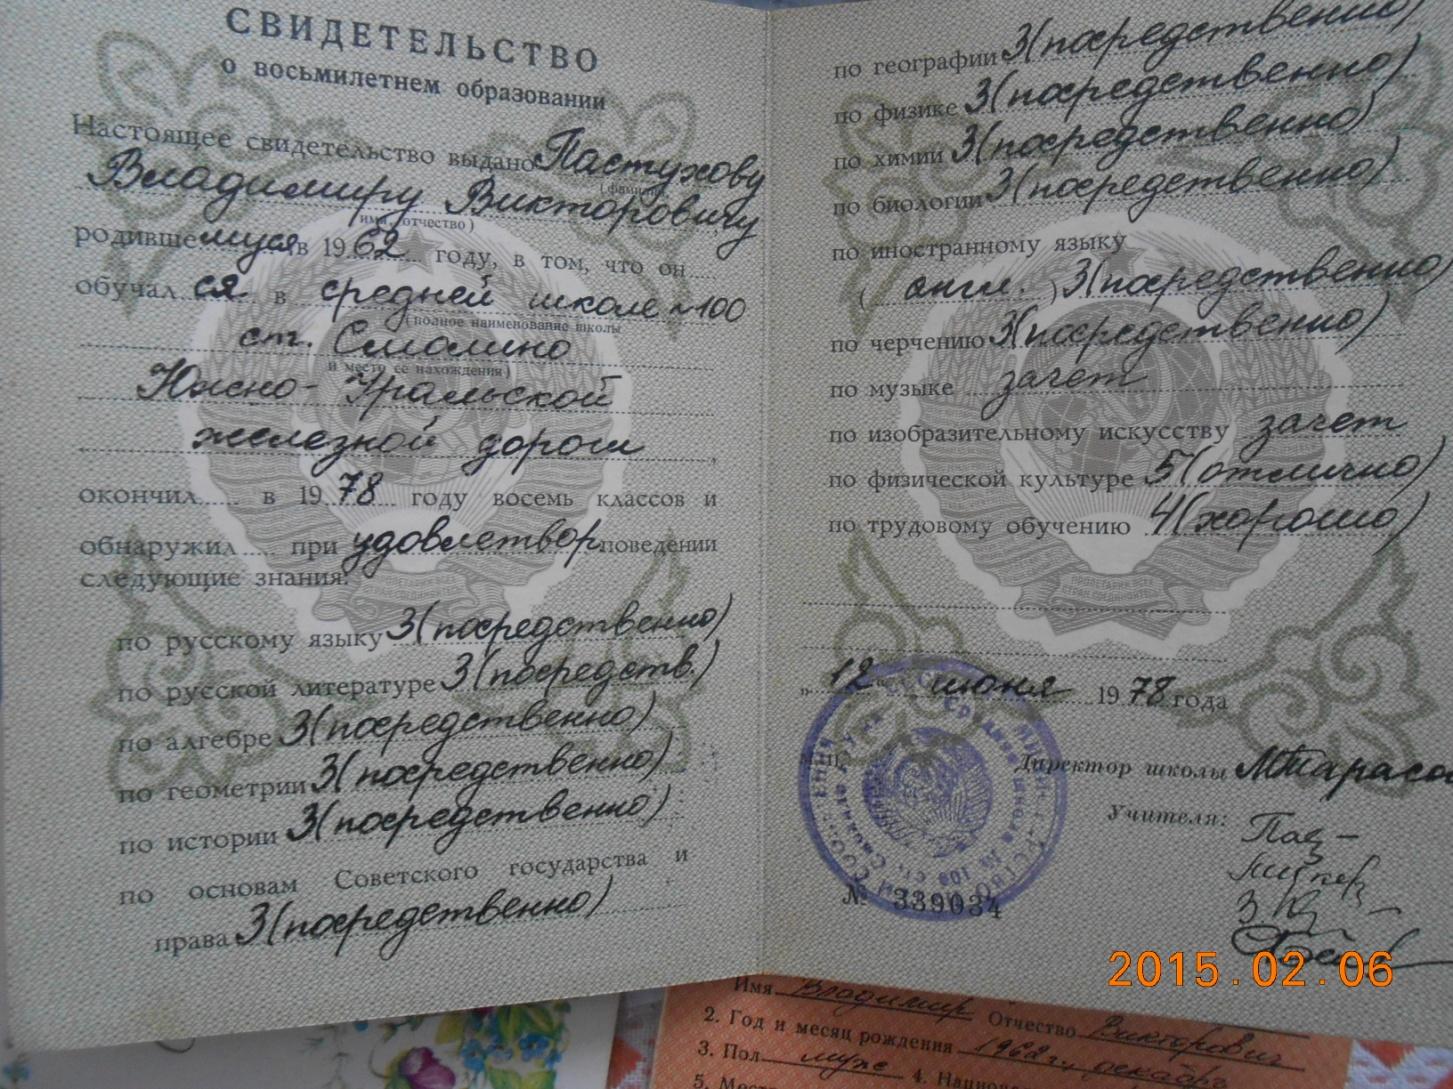 СВИДЕТЕЛЬСТВО
о восьмилетнем образовании
Настоящее свидетельство выдано Пастухову
(фамилия,
Владимиру Викторовичу
имя, отчество)
родившемуся в 1962 году, в том, что он
обучался в средней школе №100
(полное наименование школы
ст. Смолино
и место ее нахождения)
Южно-Уральской
железной дороги
окончил в 1978 году восемь классов и
обнаружил при удовлетвор. поведении
следующие знания:
по русскому языку 3(посредственно)
по русской литературе 3(посредств.)
по алгебре 3(посредственно)
по геометрии 3(посредственно)
по истории 3(посредственно)
по основам Советского государства и
права 3(посредственно)
по географии 3(посредственно)
по физике 3(посредственно)
по химии 3(посредственно)
по биологии 3(посредственно)
по иностранному языку
(англ.) 3(посредственно)
по черчению 3(посредственно)
по музыке зачет
по изобразительному искусству зачет
по физической культуре 5(отлично)
по трудовому обучению 4(хорошо)
„12" июня 1978 года
М.П.
Директор школы
Учителя:
№ 339034
2015.02.06
Имя Владимир Отчество Викторович
2. Год и месяц рождения 1962 г., декабрь
3. Пол муж 4.
5.